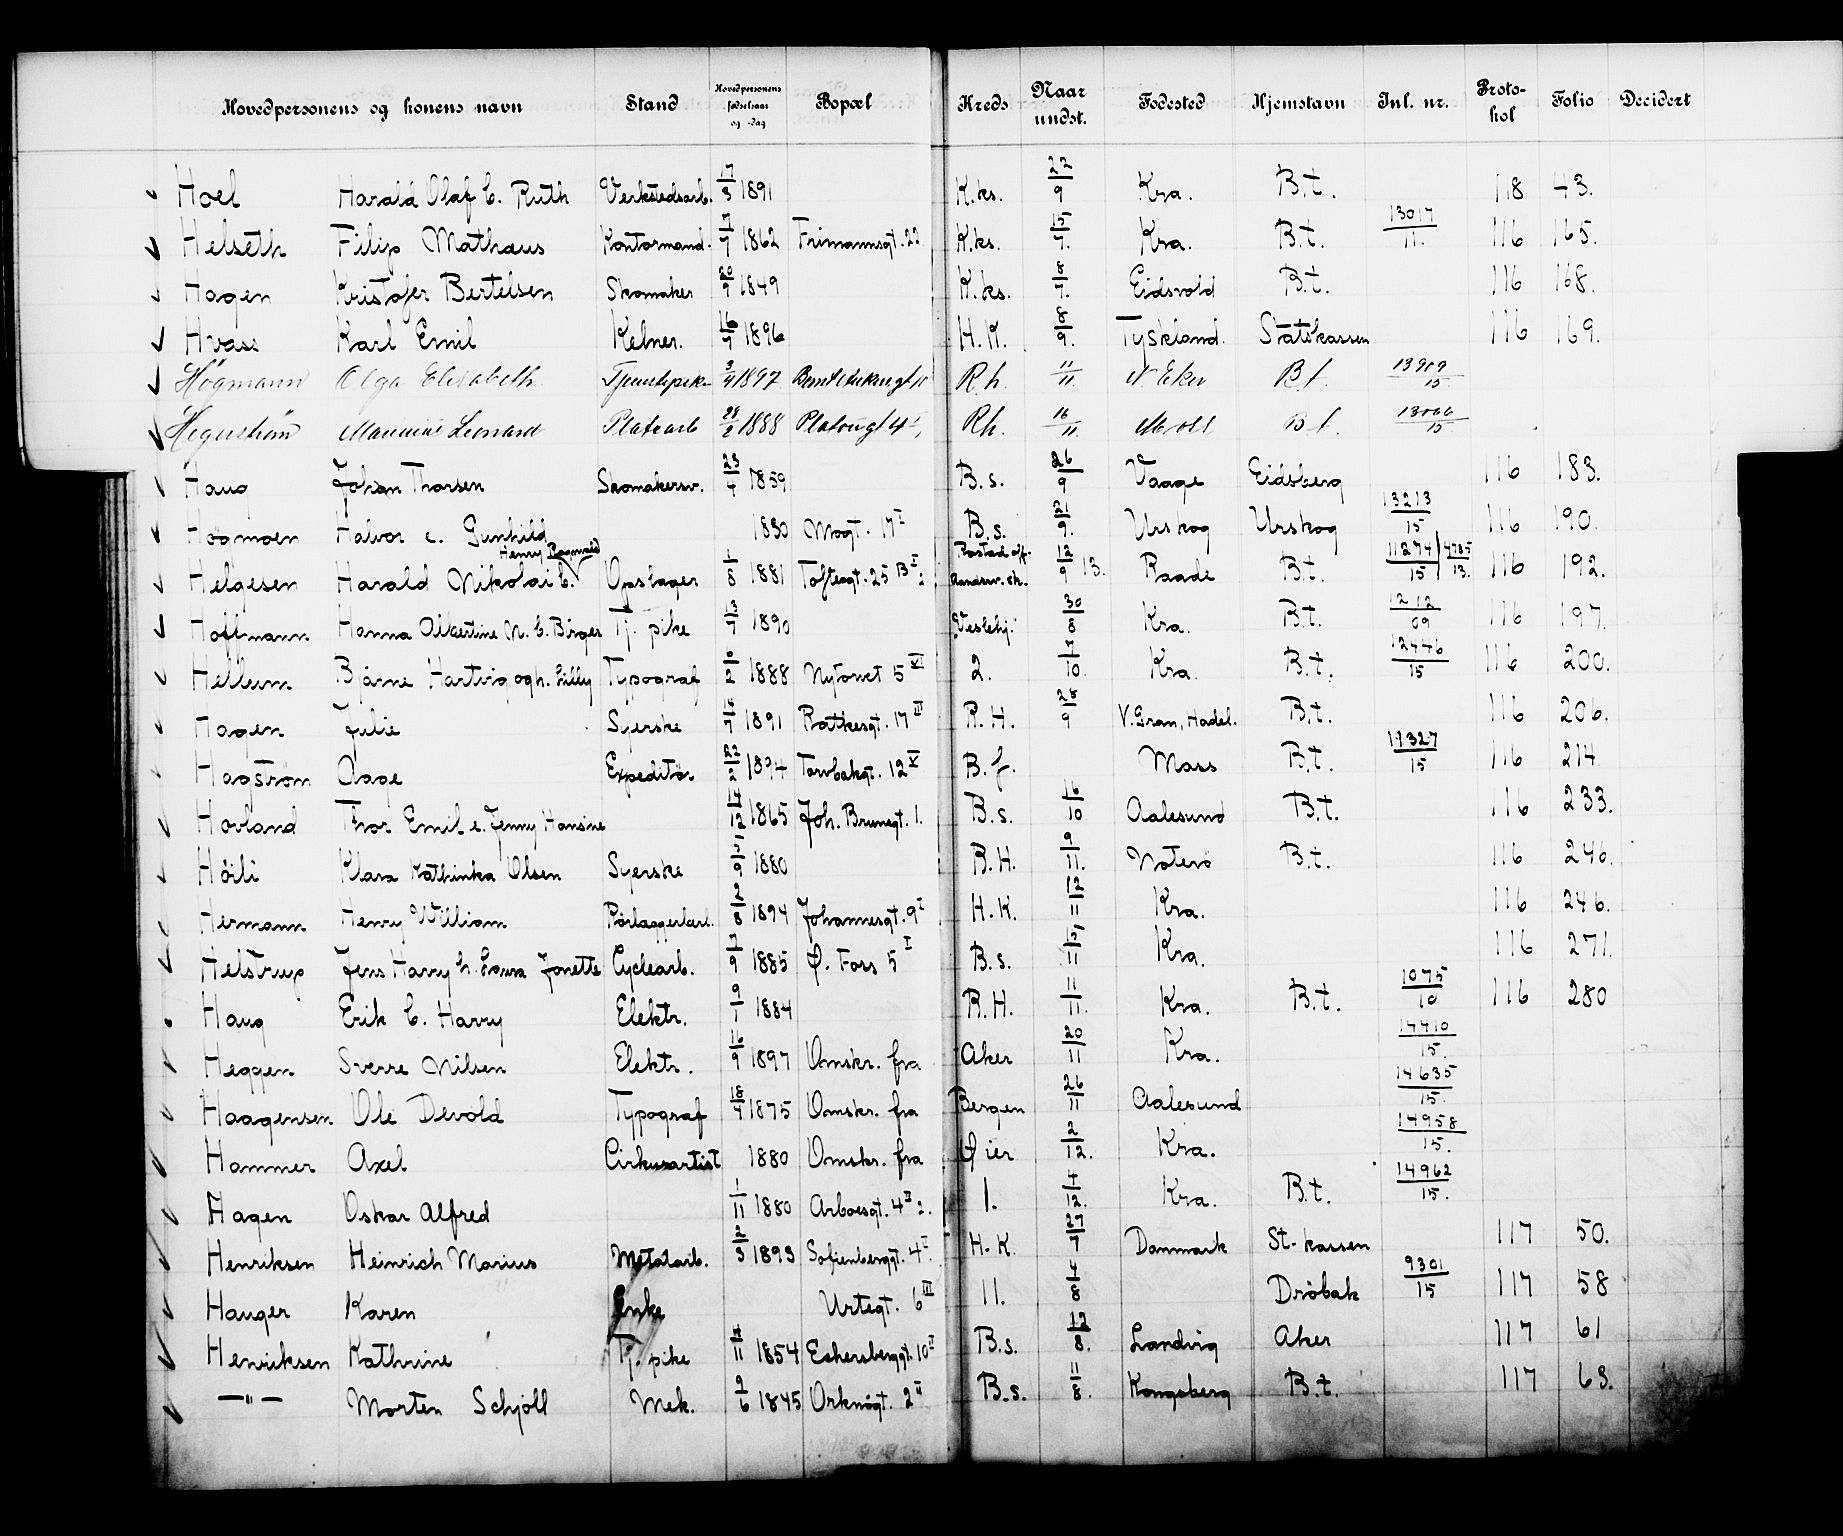 Hovedpersonens og konens navn Stand Hovedpersonens fødselsaar og -dag Bopæl Kreds Naar undst. Fødested Hjemstavn Inl. nr. Proto-kol Folio Decidert
Hoel Harald Olaf C. Ruth Verkstedsarb. 17/3 1891 K.ks. 22/9 Kra. B.t. 118 43.
Helseth Filip Mathæus Kontormand. 7/7 1862 Frimannsgt. 22 K.ks. 15/7. Kra. B.t. 13017/11. 116 165.
Hagen Kristofer Bertelsen Skomaker 20/9 1849 K.ks. 8/7. Eidsvold B.t. 116 168.
Hvass Karl Emil Kelner. 16/7 1896 H.K. 8/9. Tyskland. Statskassen 116 169.
Högmann Olga Elisabeth Tjenestepike 3/4 1897 R.h. 11/11. N Eker B.t. 13909/15.
Leonard Platearb 1888 Platougt 4 R.h. 16/11. B.t. 13066/15.
Haug Johan Thorsen Skomakersv. 23/4 1859 B.s. 26/9 Vaage Eidsberg 116 183.
Haagmoen Halvor e. Gunhild 1830 Mogt. 17 I B.s. 21/9. Urskog Urskog 13213/15 116 190.
Henry Ragnvald
Helgesen Harald Nikolai C. Opslager 1/8 1881 Toftesgt. 25 B I : 12/9 13. Raade B.t. 11274/15 4785/13. 116 192.
Hoffmann Hanna Albertine N. C. Birger Tj. pike 13/7 1890 Veslehj. 30/8 Kra. B.t. 1212/09 116 197.
Hellum Bjarne Hartvig ogh. Lilly Typograf 6/2 1888 Nytorvet 5 VI 2. 7/10 Kra. B.t. 12446/15 116 200.
Hagen Julie Syerske 14/7 1891 Ratkesgt. 17 III R.H. 28/9 V. Gran, Hadel. B.t. 116 206.
Hagström Aage Expeditör 22/2 1894 Torvbakgt. 12 V B.f. Moss B.t. 11327/15 116 214.
Hovland Thor Emil e. Jenny Hansine 14/12 1865 Joh. Brunsgt. 1. B.s. 16/10 Aalesund B.t. 116 233.
Höili Klara Kathinka Olsen Syerske 5/9 1880 R.H. 9/11. Noterö B.t. 116 246.
Hermann Henry William Rörlæggerlærl. 2/8 1894 Johannesgt. 9 I H.K. 12/11 Kra. 116 246.
Helstrup Jens Harry h. Laura Jonette Cyclearb. 7/9 1885 Ø. Foss 5 I B.s. 15/11 Kra. 116 271.
Haug Erik C. Harry Elektr. 9/1 1884 R.H. 11/11. Kra. B.t. 1075/10 116 280
Heggen Sverre Nilsen Elektr. 16/9 1897 Omskr. fra Aker 20/11 Kra. 14410/15.
Haagensen Ole Devold Typograf 18/4 1875 Omskr. fra Bergen 26/11 Aalesund 14635/15.
Hammer Axel Cirkusartist 1880 Omskr. fra Øier 2/12. Kra. 14958/15.
Hagen Oskar Alfred 1/11 1880 Arboesgt. 4 II : 1. 4/12. Kra. B.t. 14962/15.
Henriksen Heinrich Marius Metalarb. 2/3 1893 Sofienberggt. 4 I H.K. 27/7 Danmark St-kassen 117 50.
Hauger Karen Enke Urtegt. 6 III 11. 4/8 Dröbak 9301/15 117 58
Henriksen Kathrine Tj. pike 4/11 1854 Eckersberggt. 10 I B.s. 12/8. Landvig Aker 117 61
—"— Morten Schjöll Mek. 9/6 1845 Orknögt. 2 II B.s. 11/8. Kongsberg B.t. 117 63.